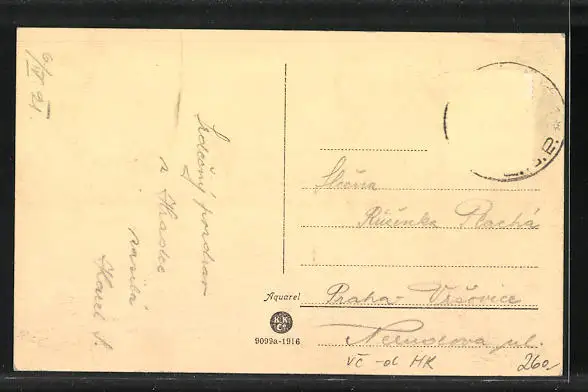 6/IV 21.
Srdečný pozdrav
z Hradce
zasílá
Karel S.
Slečna
Růženka Plachá
Praha-Vršovice
Nerudova ul.
Aquarel
K.K.
Co.
9099a-1916
VČ -d HK
260,-